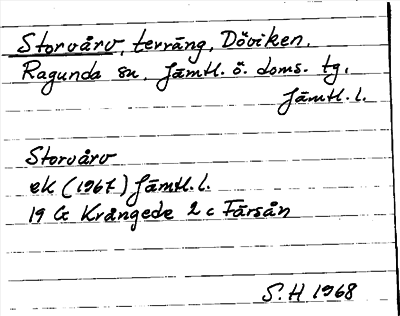 Storvårv, terräng, Döviken,
Ragunda sn, Jämtl. ö. doms. tg,
Jämtl. l.
Storvårv
ek (1967) Jämtl. l.
19 G Krångede 2 c Färsån
S. H 1968